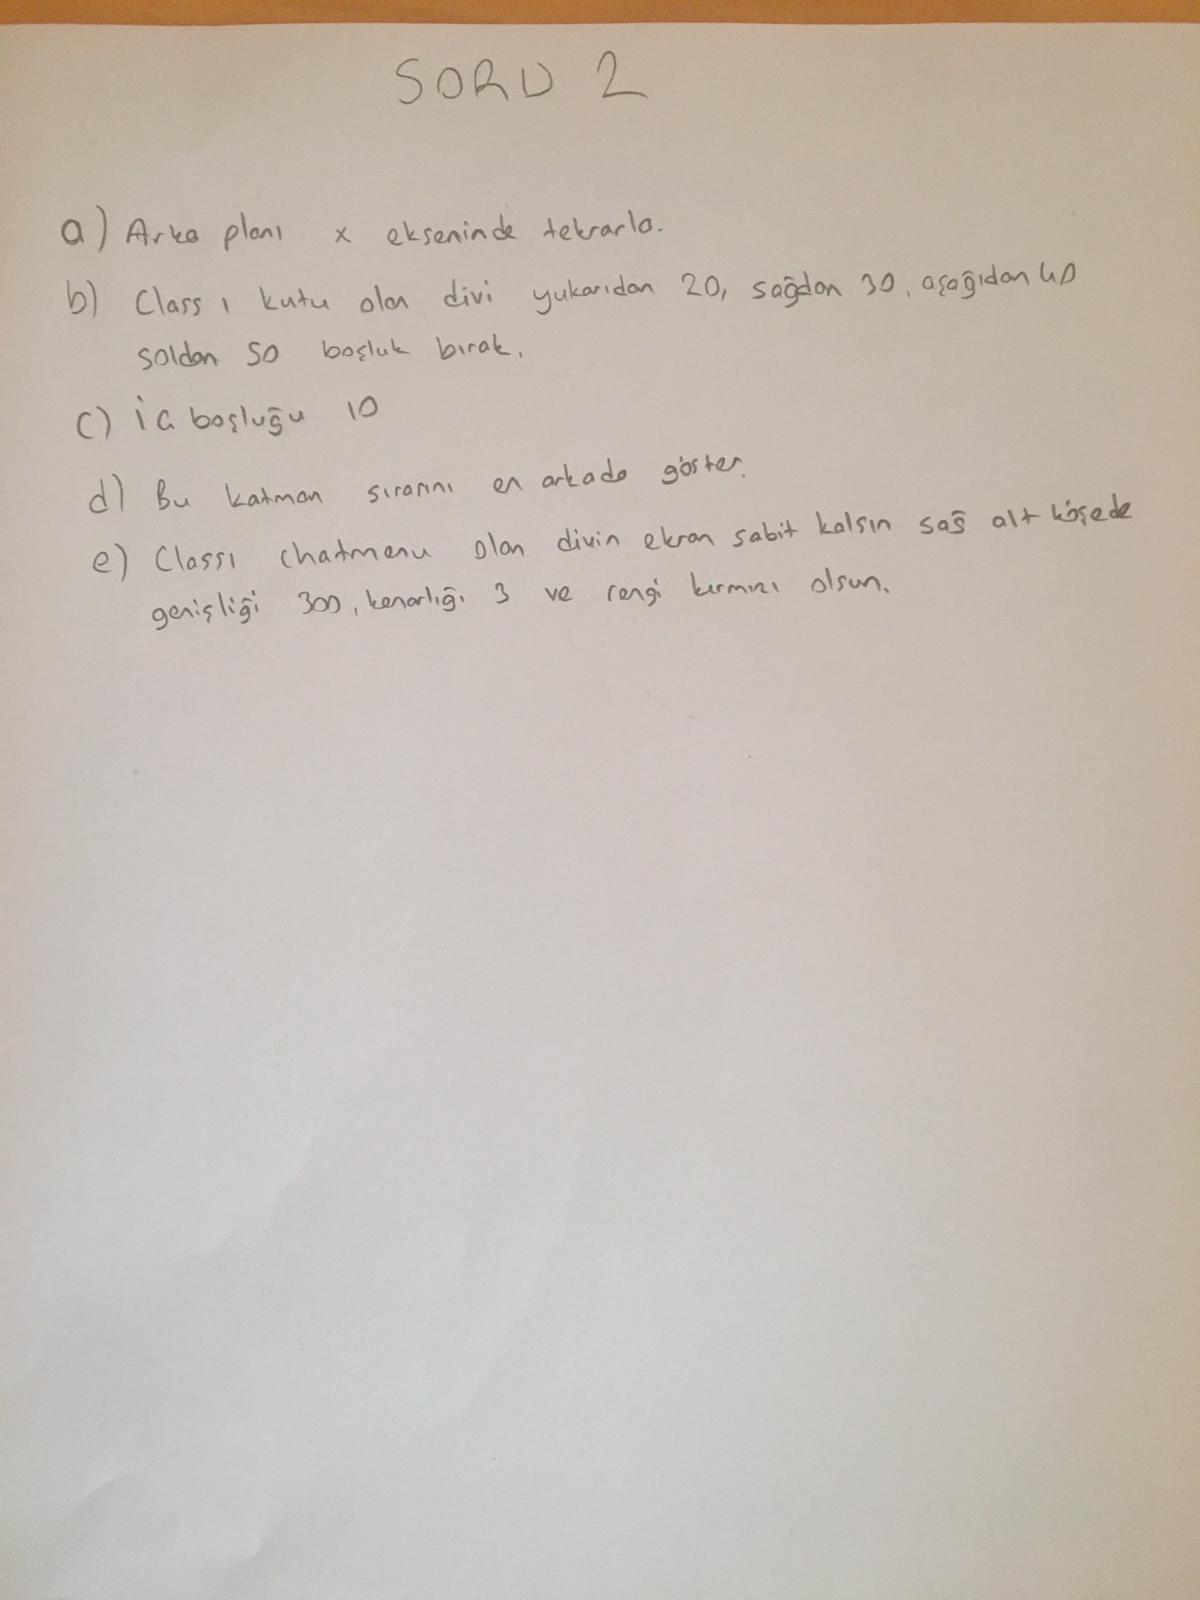 SORU 2
a) Arka planı x ekseninde tekrarla.
b) Class ı kutu olan divi yukarıdan 20, sağdan 30, aşağıdan 40
soldan 50 boşluk bırak.
c) İç boşluğu 10
d) Bu katman sırasını en arkada göster.
e) Classı chatmenu olan divin ekran sabit kalsın sağ alt köşede
genişliği 300, kenarlığı 3 ve rengi kırmızı olsun.